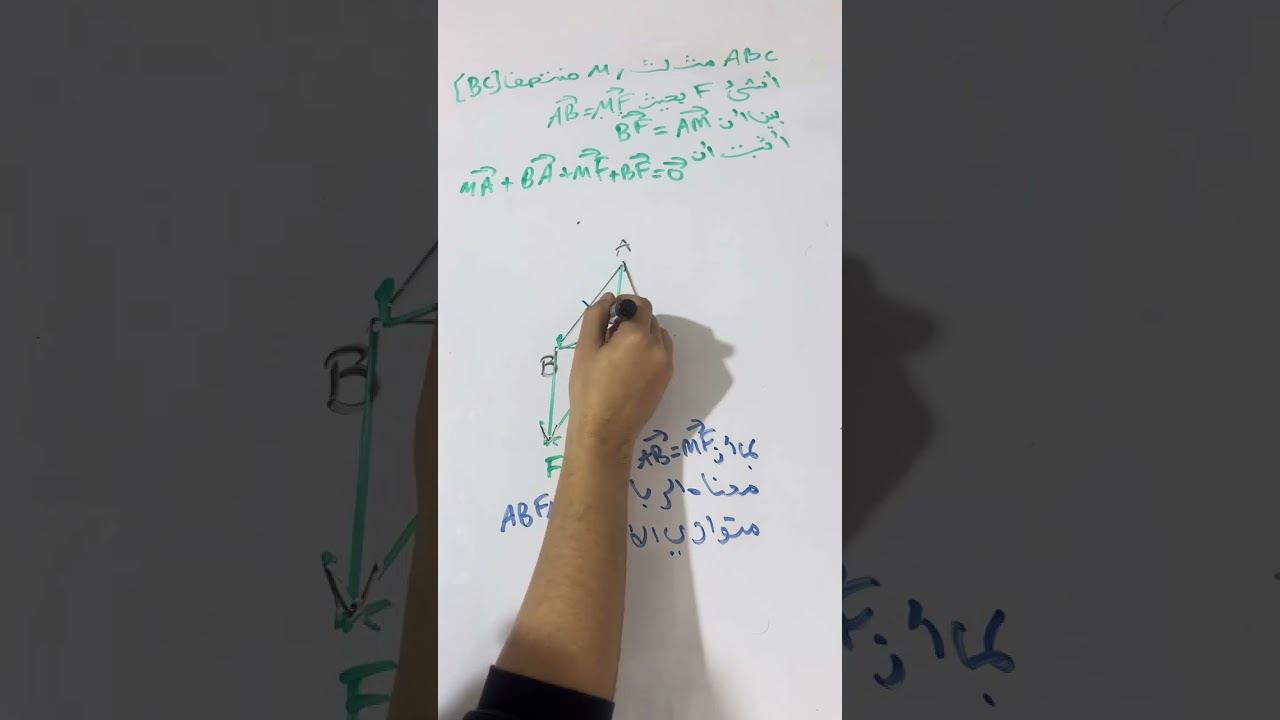 ABC مثلث، M منتصف [BC]
أنشئ F بحيث AB=MF
بين أن BF=AM
أثبت أن MA+BA+MF+BF=0
A
B
F
بما أن AB=MF
معناه
ABF
متوازي